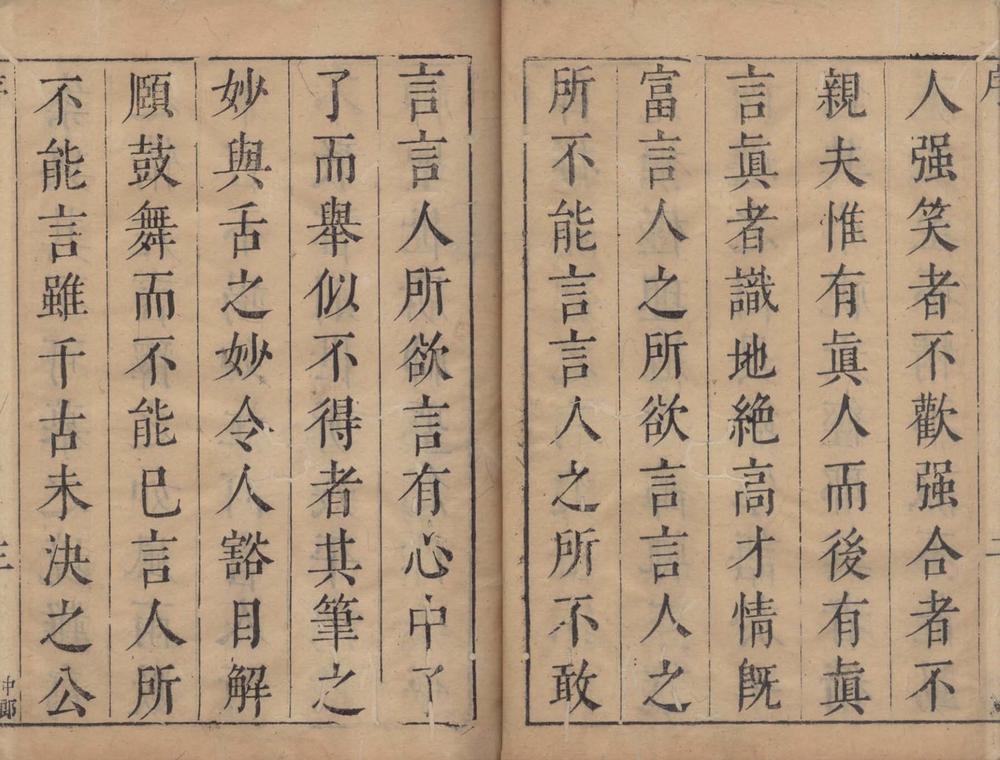 人强笑者不歡强合者不
親夫惟有眞人而後有眞
言眞者識地絶高才情旣
富言人之所欲言言人之
所不能言言人之所不敢
言言人所欲言有心中了
了而舉似不得者其筆之
妙與舌之妙令人豁目解
頤鼓舞而不能已言人所
不能言雖千古未決之公
中郎